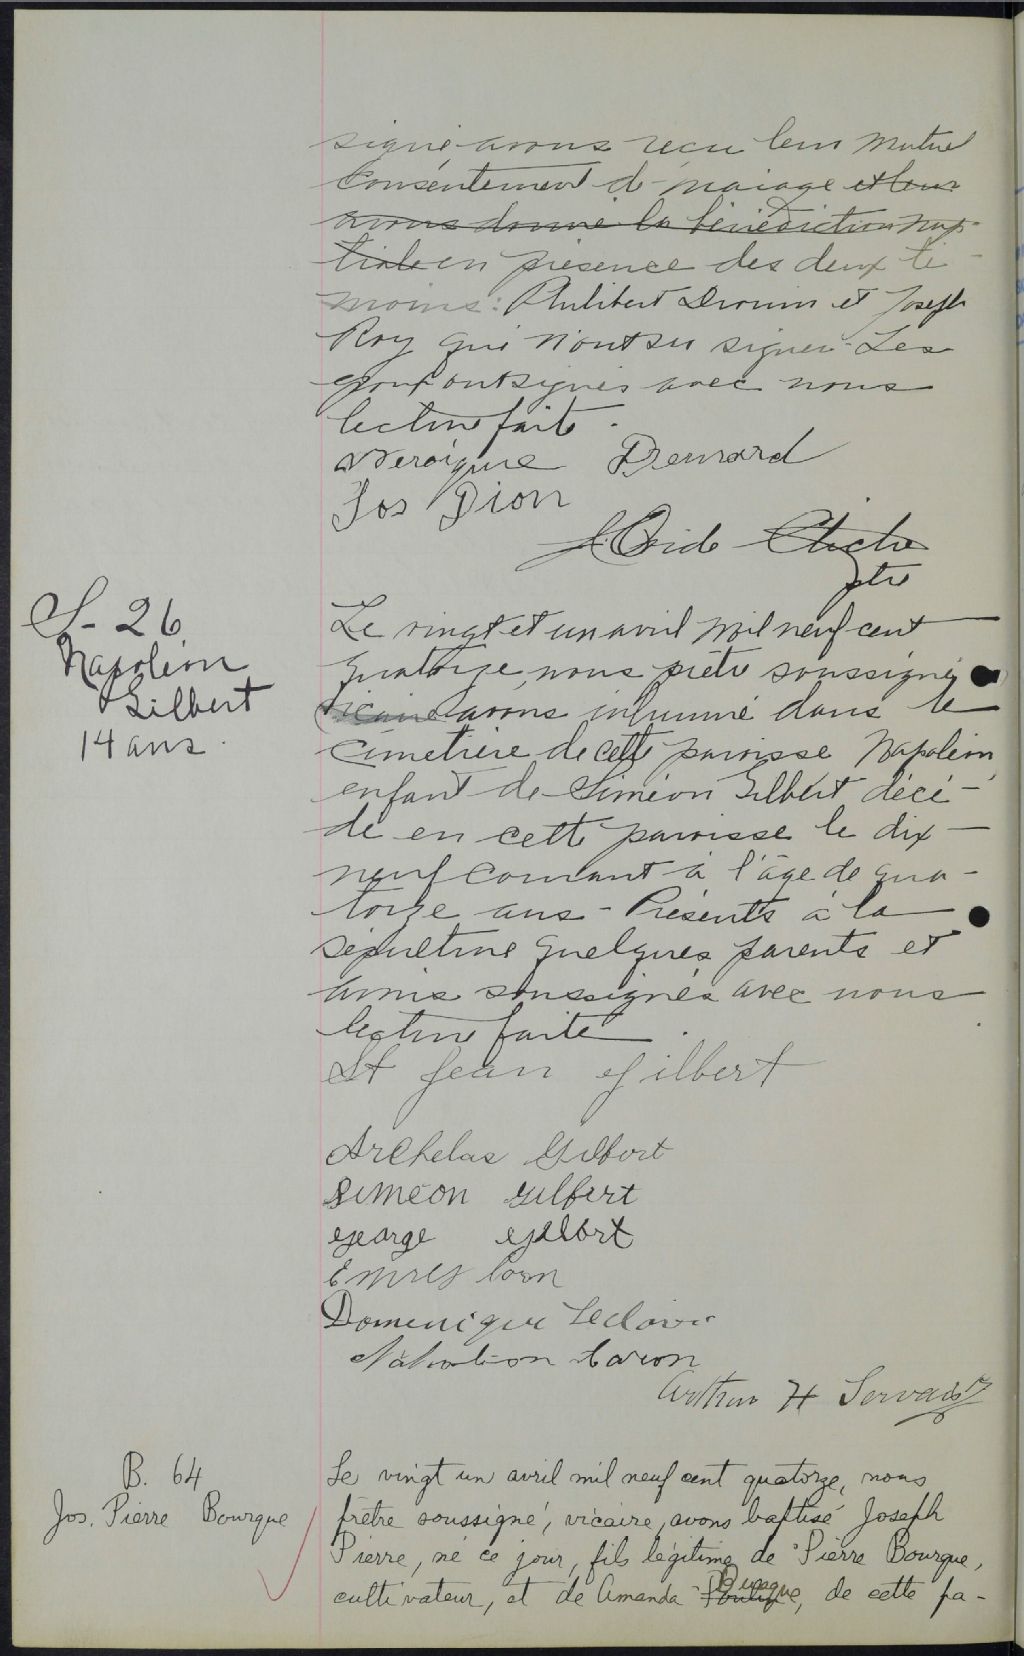 signé avons reçu leur mutuel
consentement d mariage et leur
avons donné la bénédiction nup-
tiale en présence des deux té-
moins: Philibert Drouin et Joseph
Roy qui n'ont su signer. Les
époux ont signés avec nous
lecture faite.
Jos Dion
ptre
S-26
Napoléon
Gilbert
14 ans.
Le vingt et un avril mil neuf cent
quatorze, nous prêtre soussigné
vicaire avons inhumé dans le
cimetière de cette paroisse Napoléon,
enfant de Siméon Gilbert décé-
dé en cette paroisse le dix-
neuf courant à l'âge de qua-
torze ans - Présents à la
sépulture quelques parents et
amis soussignés avec nous
lecture faite.
St Jean Gilbert
Archelas Gilbert
Siméon Gilbert
George Gilbert
Domenique
Caron
Arthur H Servais
B. 64
Jos. Pierre Bourque
Le vingt un avril mil neuf cent quatorze, nous
prêtre soussigné, vicaire, avons baptisé Joseph
Pierre, né ce jour, fils légitime de Pierre Bourque,
cultivateur, et de Amanda, de cette pa-